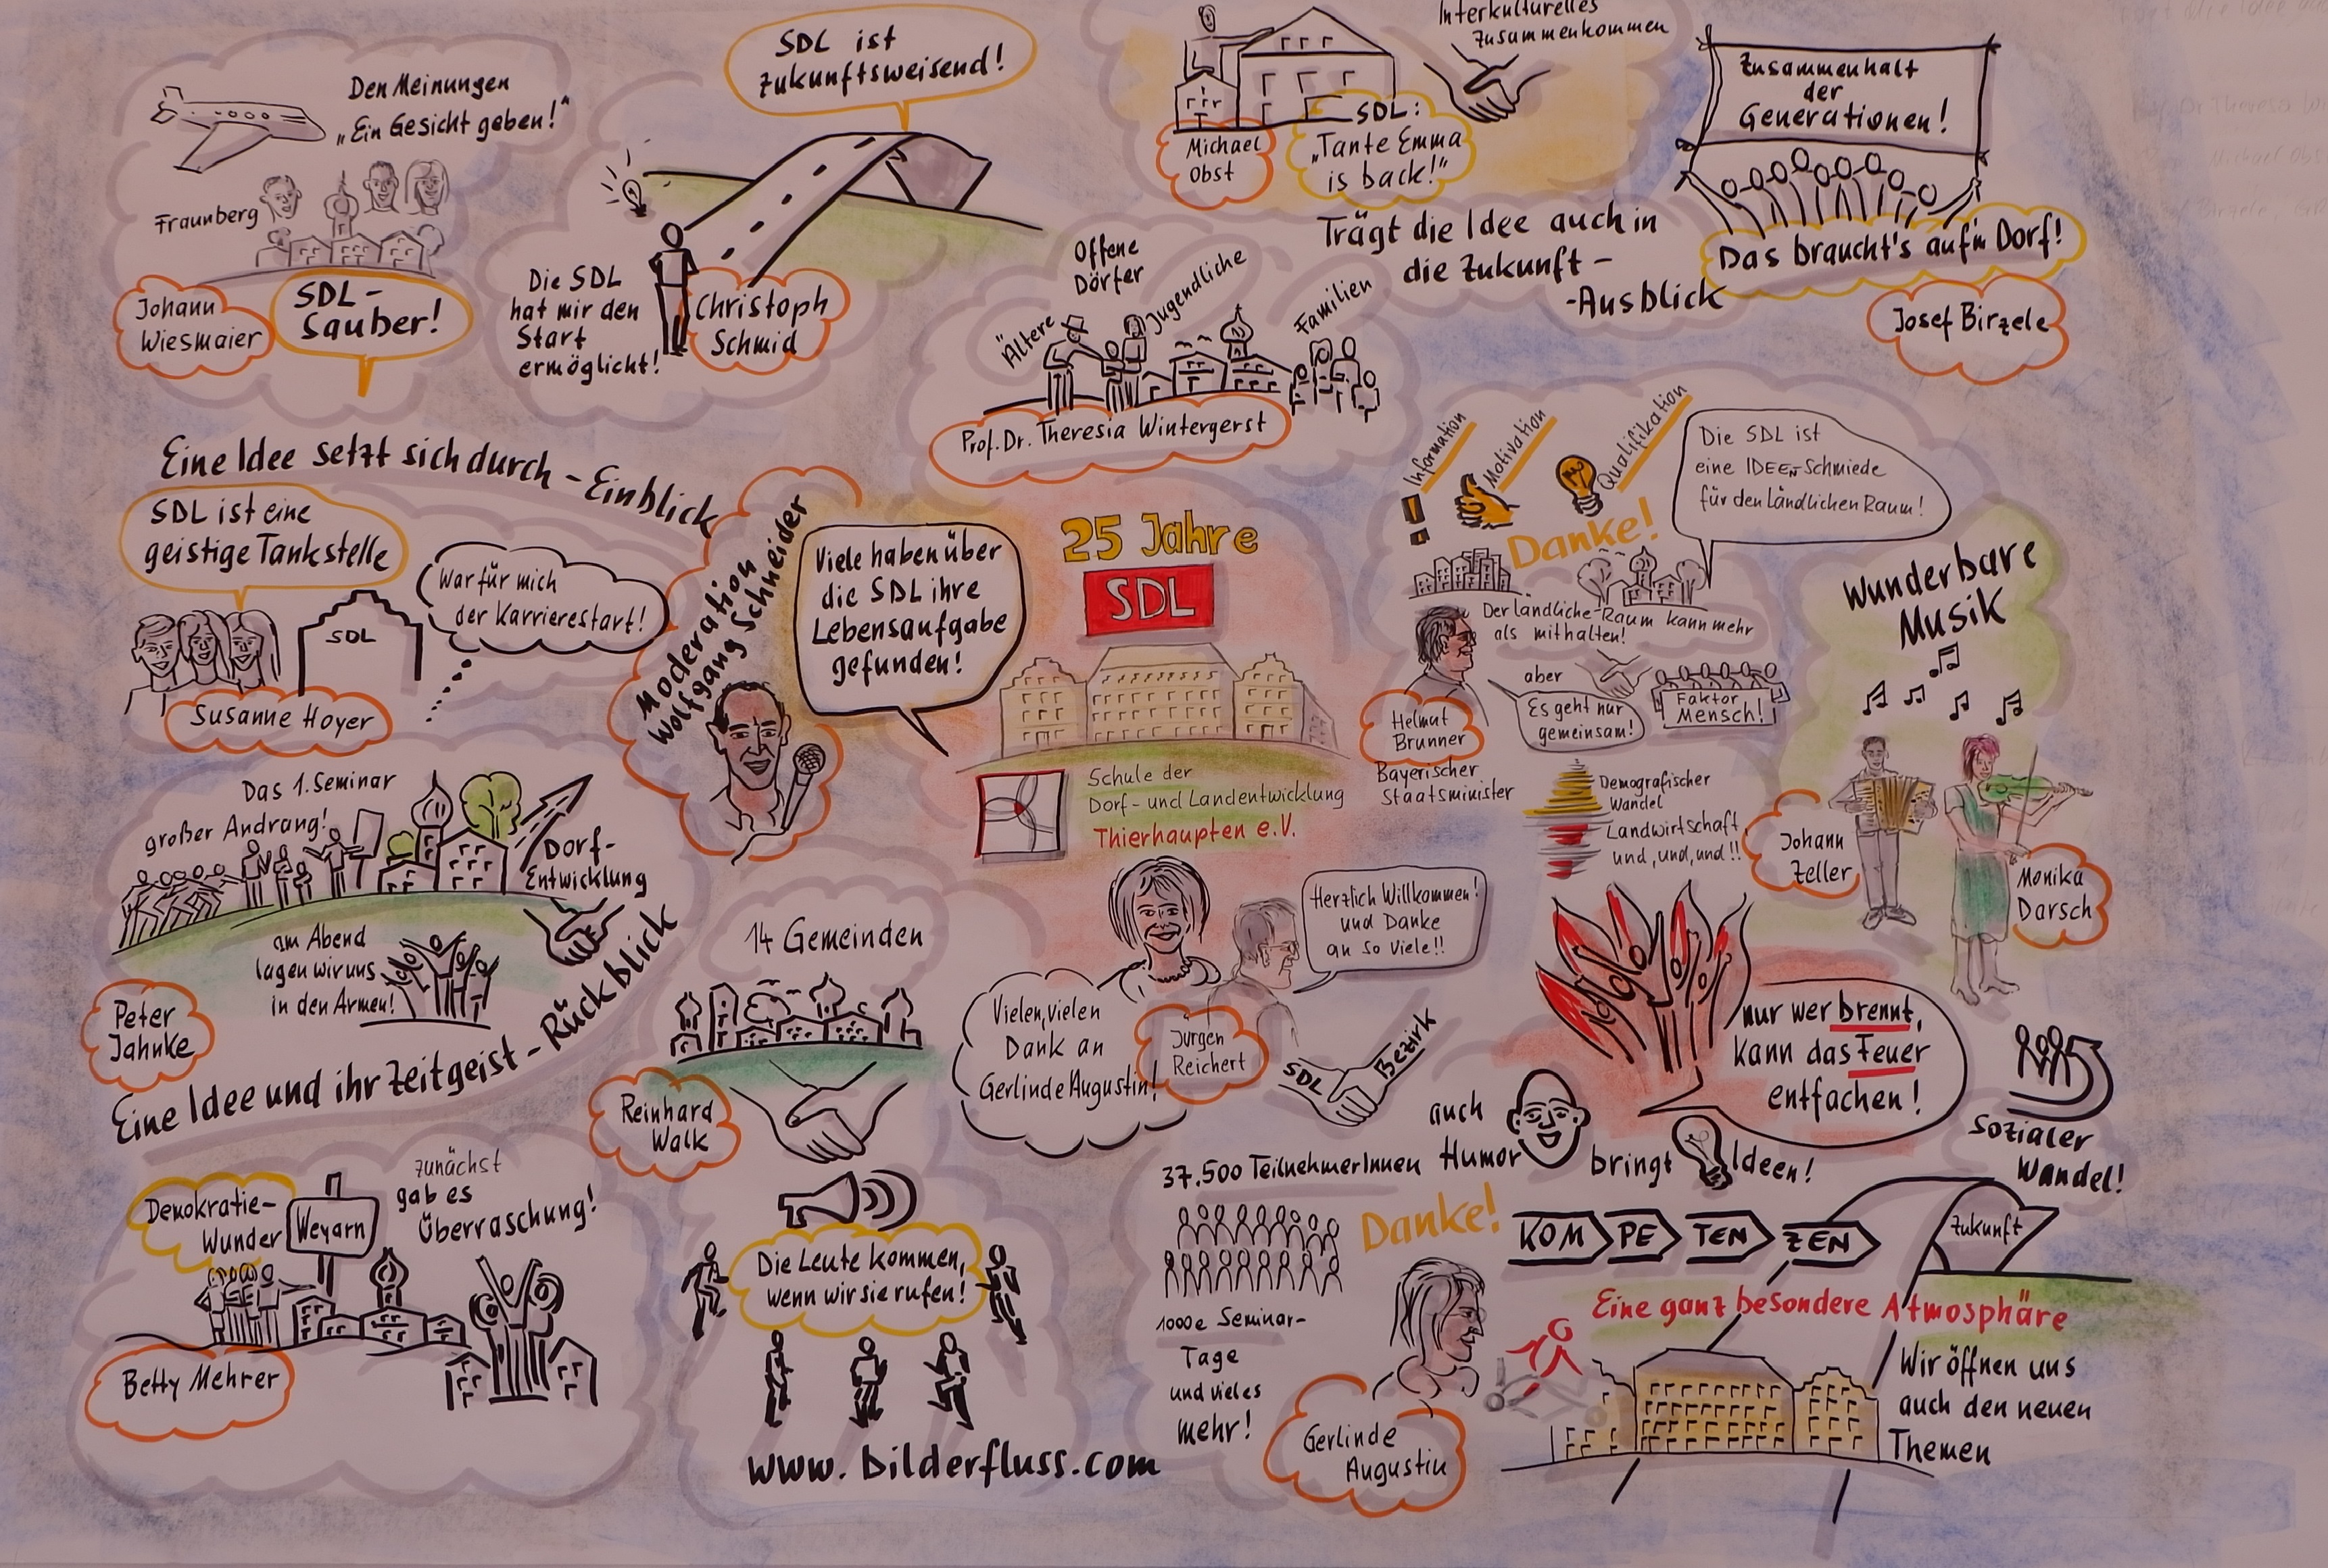 Den Meinungen
„Ein Gesicht geben!“
Fraunberg
Johann
Wiesmaier
SDL-
Sauber!
SDL ist
zukunftsweisend!
Die SDL
hat mir den
Start
ermöglicht!
Christoph
Schmid
Interkulturelles
Zusammenkommen
Michael
Obst
SDL:
„Tante Emma
is back!“
Zusammenhalt
der
Generationen!
Das braucht's auf'm Dorf!
Josef Birzele
Trägt die Idee auch in
die Zukunft -
-Ausblick
Offene
Dörfer
Ältere
Jugendliche
Familien
Prof. Dr. Theresia Wintergerst
Eine Idee setzt sich durch - Einblick
SDL ist eine
geistige Tankstelle
SDL
War für mich
der Karrierestart!
Susanne Hoyer
Moderation
Wolfgang Schneider
Viele haben über
die SDL ihre
Lebensaufgabe
gefunden!
25 Jahre
SDL
Schule der
Dorf- und Landentwicklung
Thierhaupten e.V.
Information
Motivation
Qualifikation
Danke!
Die SDL ist
eine IDEEN Schmiede
für den Ländlichen Raum!
Der ländliche Raum kann mehr
als mithalten!
aber
Es geht nur
gemeinsam!
Faktor
Mensch!
Helmut
Brunner
Bayerischer
Staatsminister
Demografischer
Wandel
Landwirtschaft
und, und, und!!
Wunderbare
Musik
Johann
Zeller
Monika
Darsch
Das 1. Seminar
großer Andrang!
Dorf-
Entwicklung
am Abend
lagen wir uns
in den Armen!
Peter
Jahnke
Eine Idee und ihr Zeitgeist - Rückblick
14 Gemeinden
Reinhard
Walk
Vielen, vielen
Dank an
Gerlinde Augustin!
Jürgen
Reichert
Herzlich Willkommen!
und Danke
an so Viele!!
SDL
Bezirk
nur wer brennt,
kann das Feuer
entfachen!
Sozialer
Wandel!
auch
Humor
bringt
Ideen!
Demokratie-
Wunder
Weyarn
zunächst
gab es
Überraschung!
Betty Mehrer
Die Leute kommen,
wenn wir sie rufen!
www.bilderfluss.com
37.500 TeilnehmerInnen
Danke!
1000e Seminar-
Tage
und vieles
mehr!
Gerlinde
Augustin
KOM PE TEN ZEN
Zukunft
Eine ganz besondere Atmosphäre
Wir öffnen uns
auch den neuen
Themen